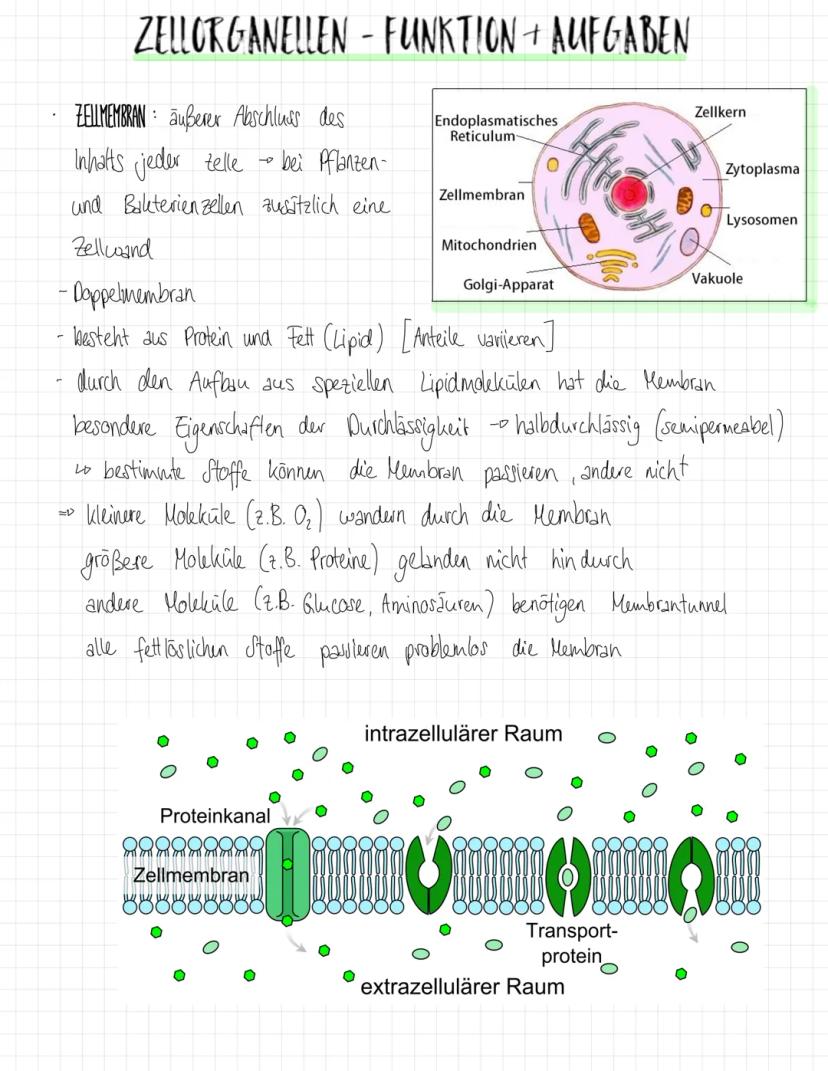 ZELLORGANELLEN - FUNKTION + AUFGABEN
· ZELLMEMBRAN: äußerer Abschluss des
Inhalts jeder Zelle → bei Pflanzen-
und Bakterienzellen zusätzlich eine
Zellwand
- Doppelmembran
Endoplasmatisches
Reticulum
Zellkern
Zytoplasma
Zellmembran
Lysosomen
Mitochondrien
Golgi-Apparat
Vakuole
- besteht aus Protein und Fett (Lipid) [Anteile variieren]
- durch den Aufbau aus speziellen Lipidmolekülen hat die Membran
besondere Eigenschaften der Durchlässigkeit → halbdurchlässig (semipermeabel)
↳ bestimmte Stoffe können die Membran passieren, andere nicht
⇒ kleinere Moleküle (z.B. O₂) wandern durch die Membran
größere Moleküle (z.B. Proteine) gelanden nicht hindurch
andere Moleküle (z.B. Glucose, Aminosäuren) benötigen Membrantunnel
alle fettlöslichen Stoffe passieren problemlos die Membran
intrazellulärer Raum
Proteinkanal
Zellmembran
Transport-
protein
extrazellulärer Raum